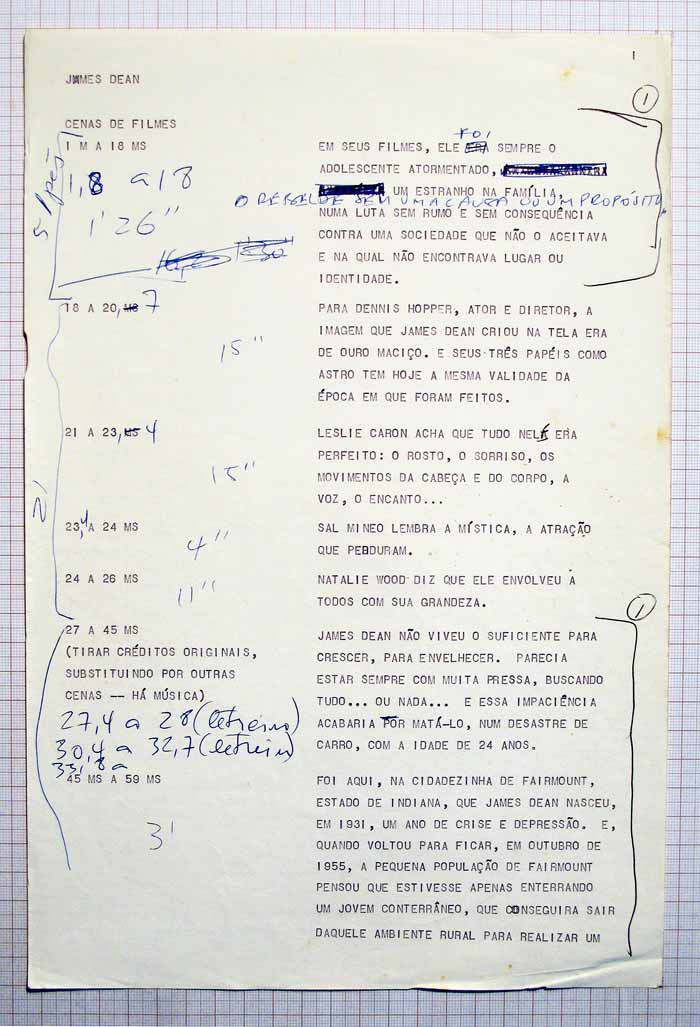 1
JAMES DEAN
1
CENAS DE FILMES
1 M A 18 MS
1,8 a 18
1' 26"
FOI
EM SEUS FILMES, ELE ERA SEMPRE O
ADOLESCENTE ATORMENTADO,
UM ESTRANHO NA FAMÍLIA,
O REBELDE SEM UMA CAUSA OU UM PROPÓSITO,
NUMA LUTA SEM RUMO E SEM CONSEQUÊNCIA
CONTRA UMA SOCIEDADE QUE NÃO O ACEITAVA
E NA QUAL NÃO ENCONTRAVA LUGAR OU
IDENTIDADE.
18 A 20, MS 7
15"
PARA DENNIS HOPPER, ATOR E DIRETOR, A
IMAGEM QUE JAMES DEAN CRIOU NA TELA ERA
DE OURO MACIÇO. E SEUS TRÊS PAPÉIS COMO
ASTRO TEM HOJE A MESMA VALIDADE DA
ÉPOCA EM QUE FORAM FEITOS.
21 A 23, MS 4
15"
LESLIE CARON ACHA QUE TUDO NELE ERA
PERFEITO: O ROSTO, O SORRISO, OS
MOVIMENTOS DA CABEÇA E DO CORPO, A
VOZ, O ENCANTO...
2)
23,4 A 24 MS
4"
SAL MINEO LEMBRA A MÍSTICA, A ATRAÇÃO
QUE PERDURAM.
24 A 26 MS
11"
NATALIE WOOD DIZ QUE ELE ENVOLVEU A
TODOS COM SUA GRANDEZA.
1
27 A 45 MS
(TIRAR CRÉDITOS ORIGINAIS,
SUBSTITUINDO POR OUTRAS
CENAS -- HÁ MÚSICA)
27,4 a 28 (letreiro)
30,4 a 32,7 (letreiro)
33,8 a
JAMES DEAN NÃO VIVEU O SUFICIENTE PARA
CRESCER, PARA ENVELHECER. PARECIA
ESTAR SEMPRE COM MUITA PRESSA, BUSCANDO
TUDO... OU NADA... E ESSA IMPACIÊNCIA
ACABARIA POR MATÁ-LO, NUM DESASTRE DE
CARRO, COM A IDADE DE 24 ANOS.
45 MS A 59 MS
3'
FOI AQUI, NA CIDADEZINHA DE FAIRMOUNT,
ESTADO DE INDIANA, QUE JAMES DEAN NASCEU,
EM 1931, UM ANO DE CRISE E DEPRESSÃO. E,
QUANDO VOLTOU PARA FICAR, EM OUTUBRO DE
1955, A PEQUENA POPULAÇÃO DE FAIRMOUNT
PENSOU QUE ESTIVESSE APENAS ENTERRANDO
UM JOVEM CONTERRÂNEO, QUE CONSEGUIRA SAIR
DAQUELE AMBIENTE RURAL PARA REALIZAR UM